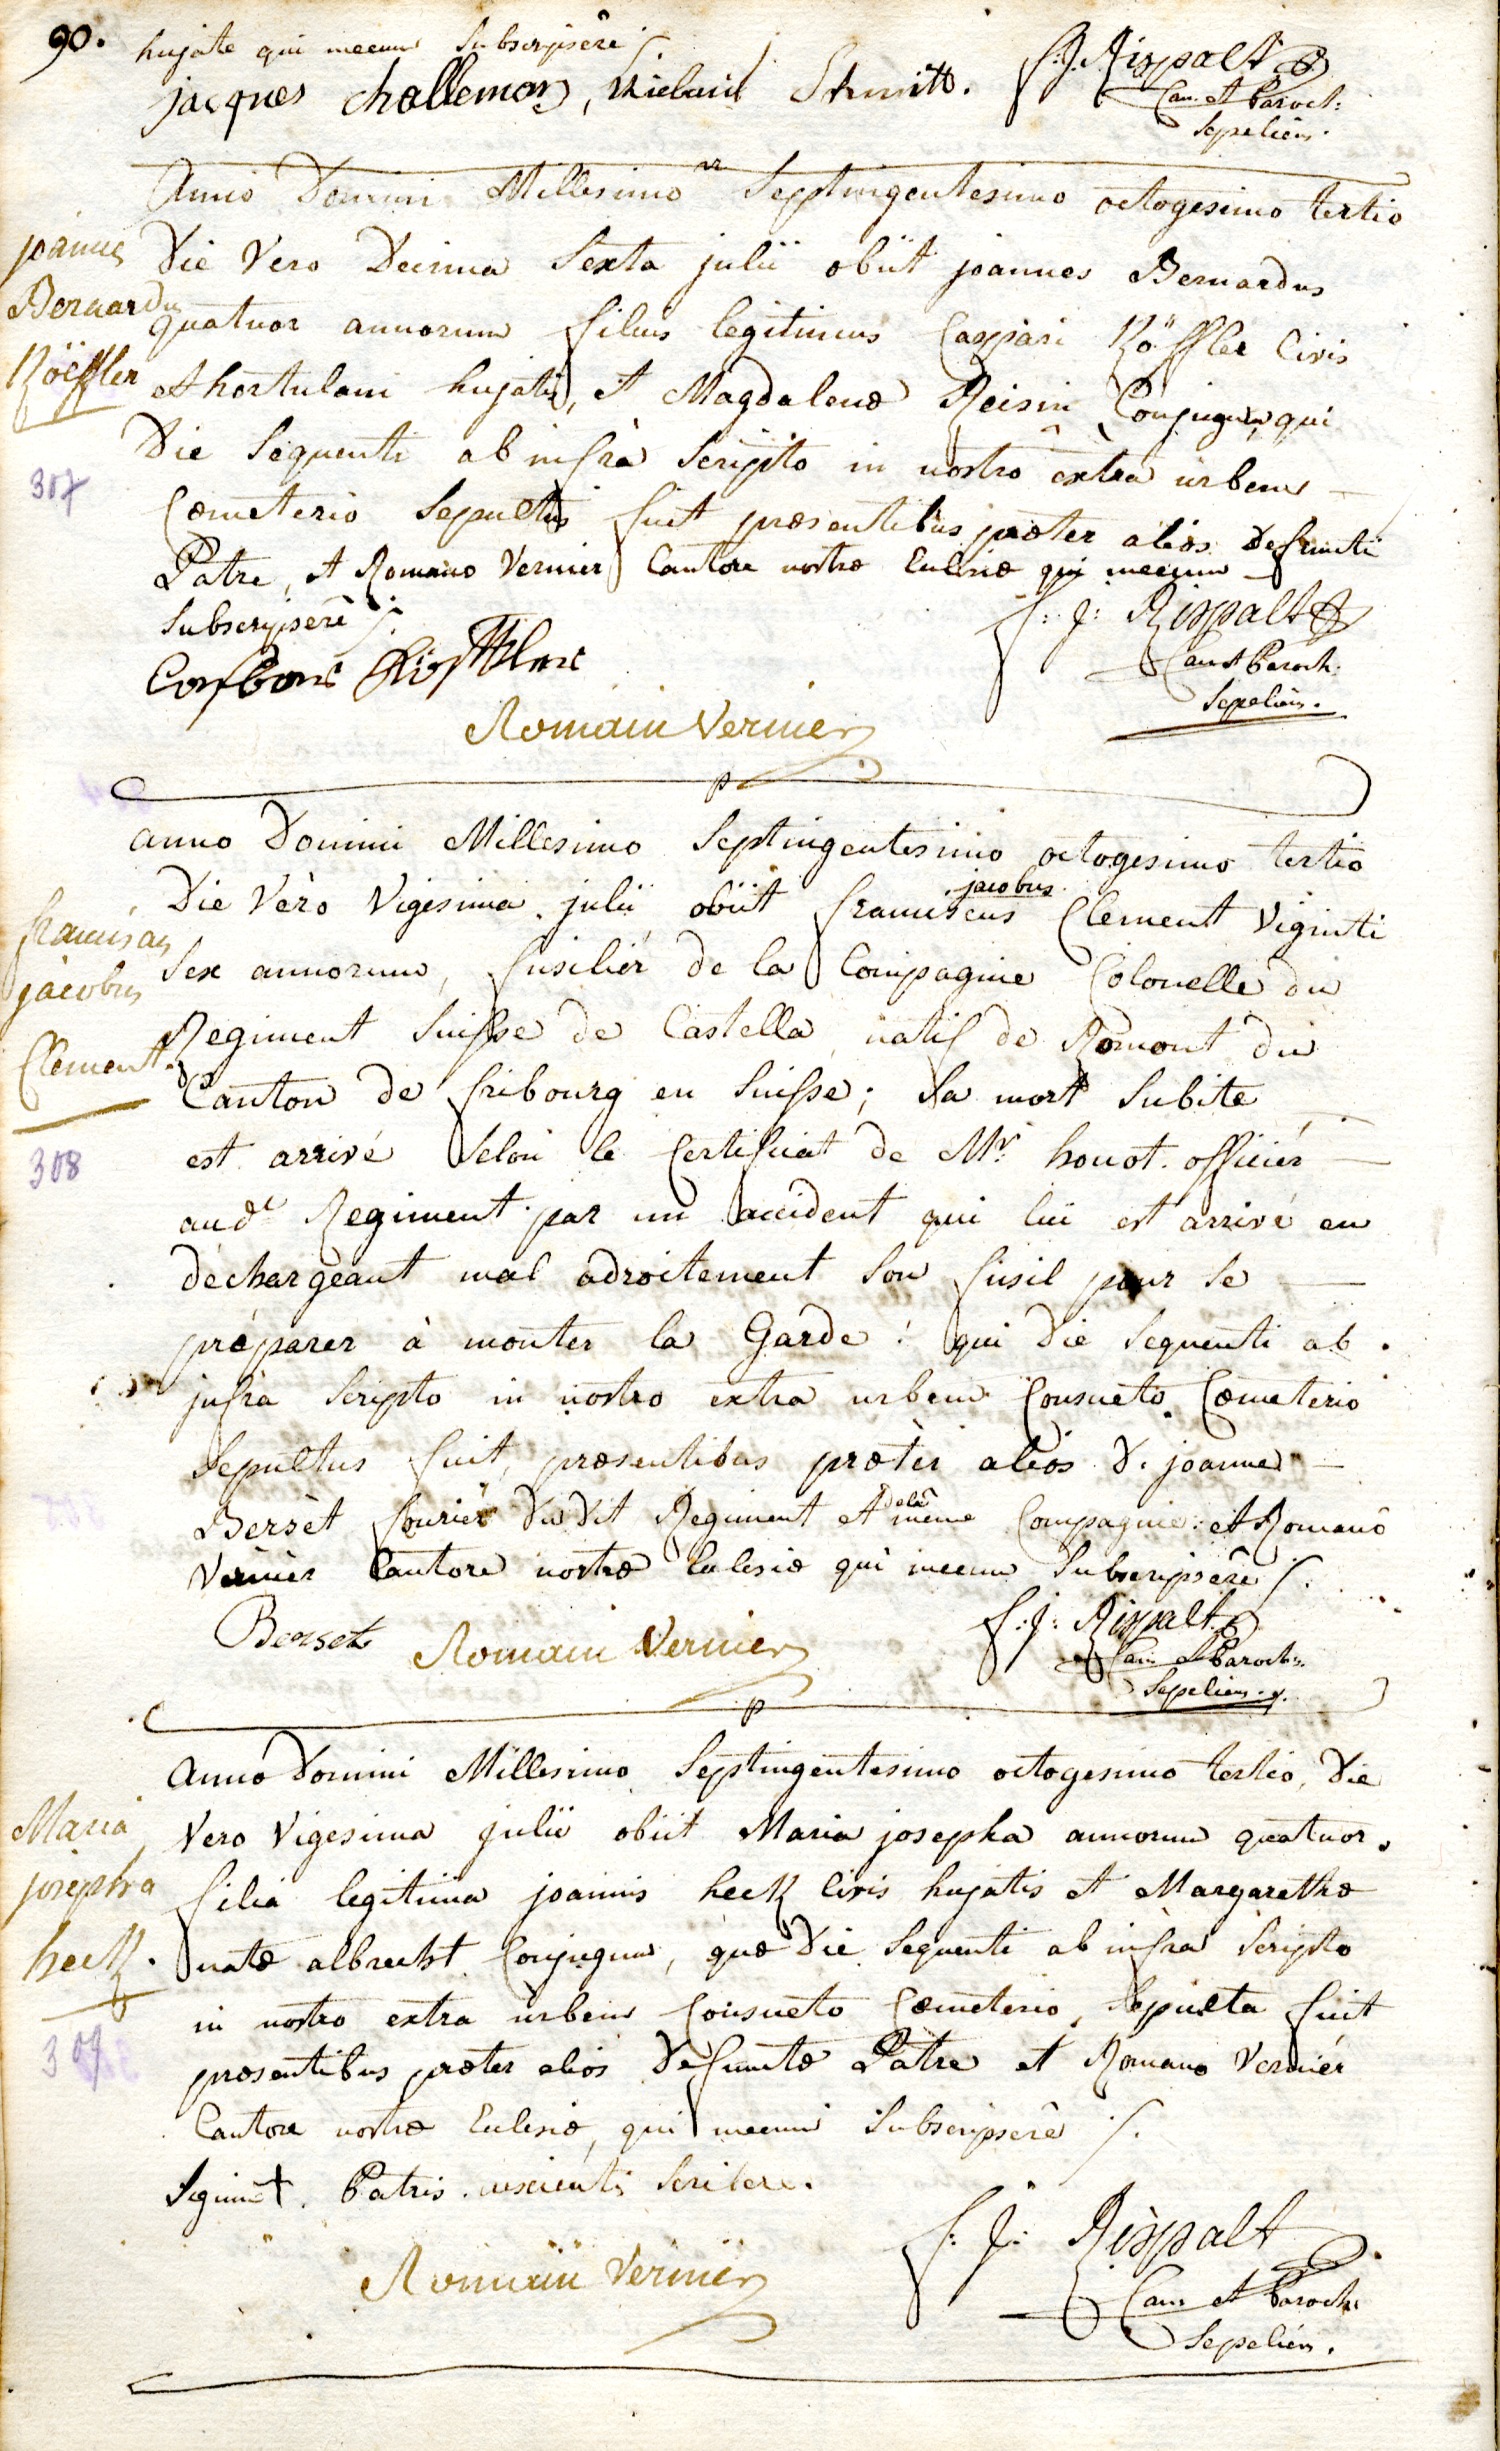 90. hujate qui mecum Subscripsêre /.
jacques challemon, Schmitt.
f. J. Rispalt
Can. et Paroch:
Sepeliens.
Anno Domini Millesimo Septingentesimo octogesimo tertio
Die Vero Decima Sexta julii obiit joannes Bernardus
quatuor annorum filius legitimus Caspari Köffler Civis
et hortulani hujatis, et Magdalenæ Reisin Conjugum, qui
Die Sequenti ab infrà Scripto in nostro extrà urbem
Cœmeterio Sepultus fuit præsentibus præter alios Defuncti
Patre, et Romano Vernier Cantore nostræ Eclesiæ qui mecum
Subscripsêre /.
joannes
Bernardus
Köffler
307
f: J: Rispalt
Can et Paroch:
Sepeliens.
Romain Vernier
anno Domini Millesimo Septingentesimo octogesimo tertio
Die Verò Vigesima julii obiit franciscus jacobus Clement Viginti
Sex annorum, fusilier de la Compagnie Colonelle du
Regiment Suisse de Castella natif de Romont du
Canton de fribourg en Suisse; Sa mort Subite
est arrivé Selon le Certificat de Mr. honot officier
aud.t Regiment par un accident qui lui est arrivé en
déchargeant mal adroitement Son fusil pour Se
préparer à monter la Garde: qui Die Sequenti ab
infrà Scripto in nostro extra urbem Consueto Cœmeterio
Sepultus fuit, præsentibus præter alios D. joanne
Berset fourier Du Dit Regiment et dela même Compagnie: et Romano
Vernier Cantore nostræ Eclesiæ qui mecum Subscripsêre /.
franciscus
jacobus
Clement.
308
Berset Romain Vernier
f: J: Rispalt
Can et Paroch:
Sepeliens.
Anno Domini Millesimo Septingentesimo octogesimo tertio, Die
Vero Vigesima julii obiit Maria josepha annorum quatuor,
filia legitima joannis heck Civis hujatis et Margarethæ
natæ albrecht Conjugum, quæ Die Sequenti ab infra Scripto
in nostro extra urbem Consueto Cœmeterio, Sepulta fuit
præsentibus præter alios Defunctæ Patre et Romano Vernier
Cantore nostræ Eclesiæ, qui mecum Subscripsêre /.
Signum † Patris nescientis Scribere.
Maria
josepha
heck.
309
Romain Vernier
f. J: Rispalt
Can et Paroch:
Sepeliens.